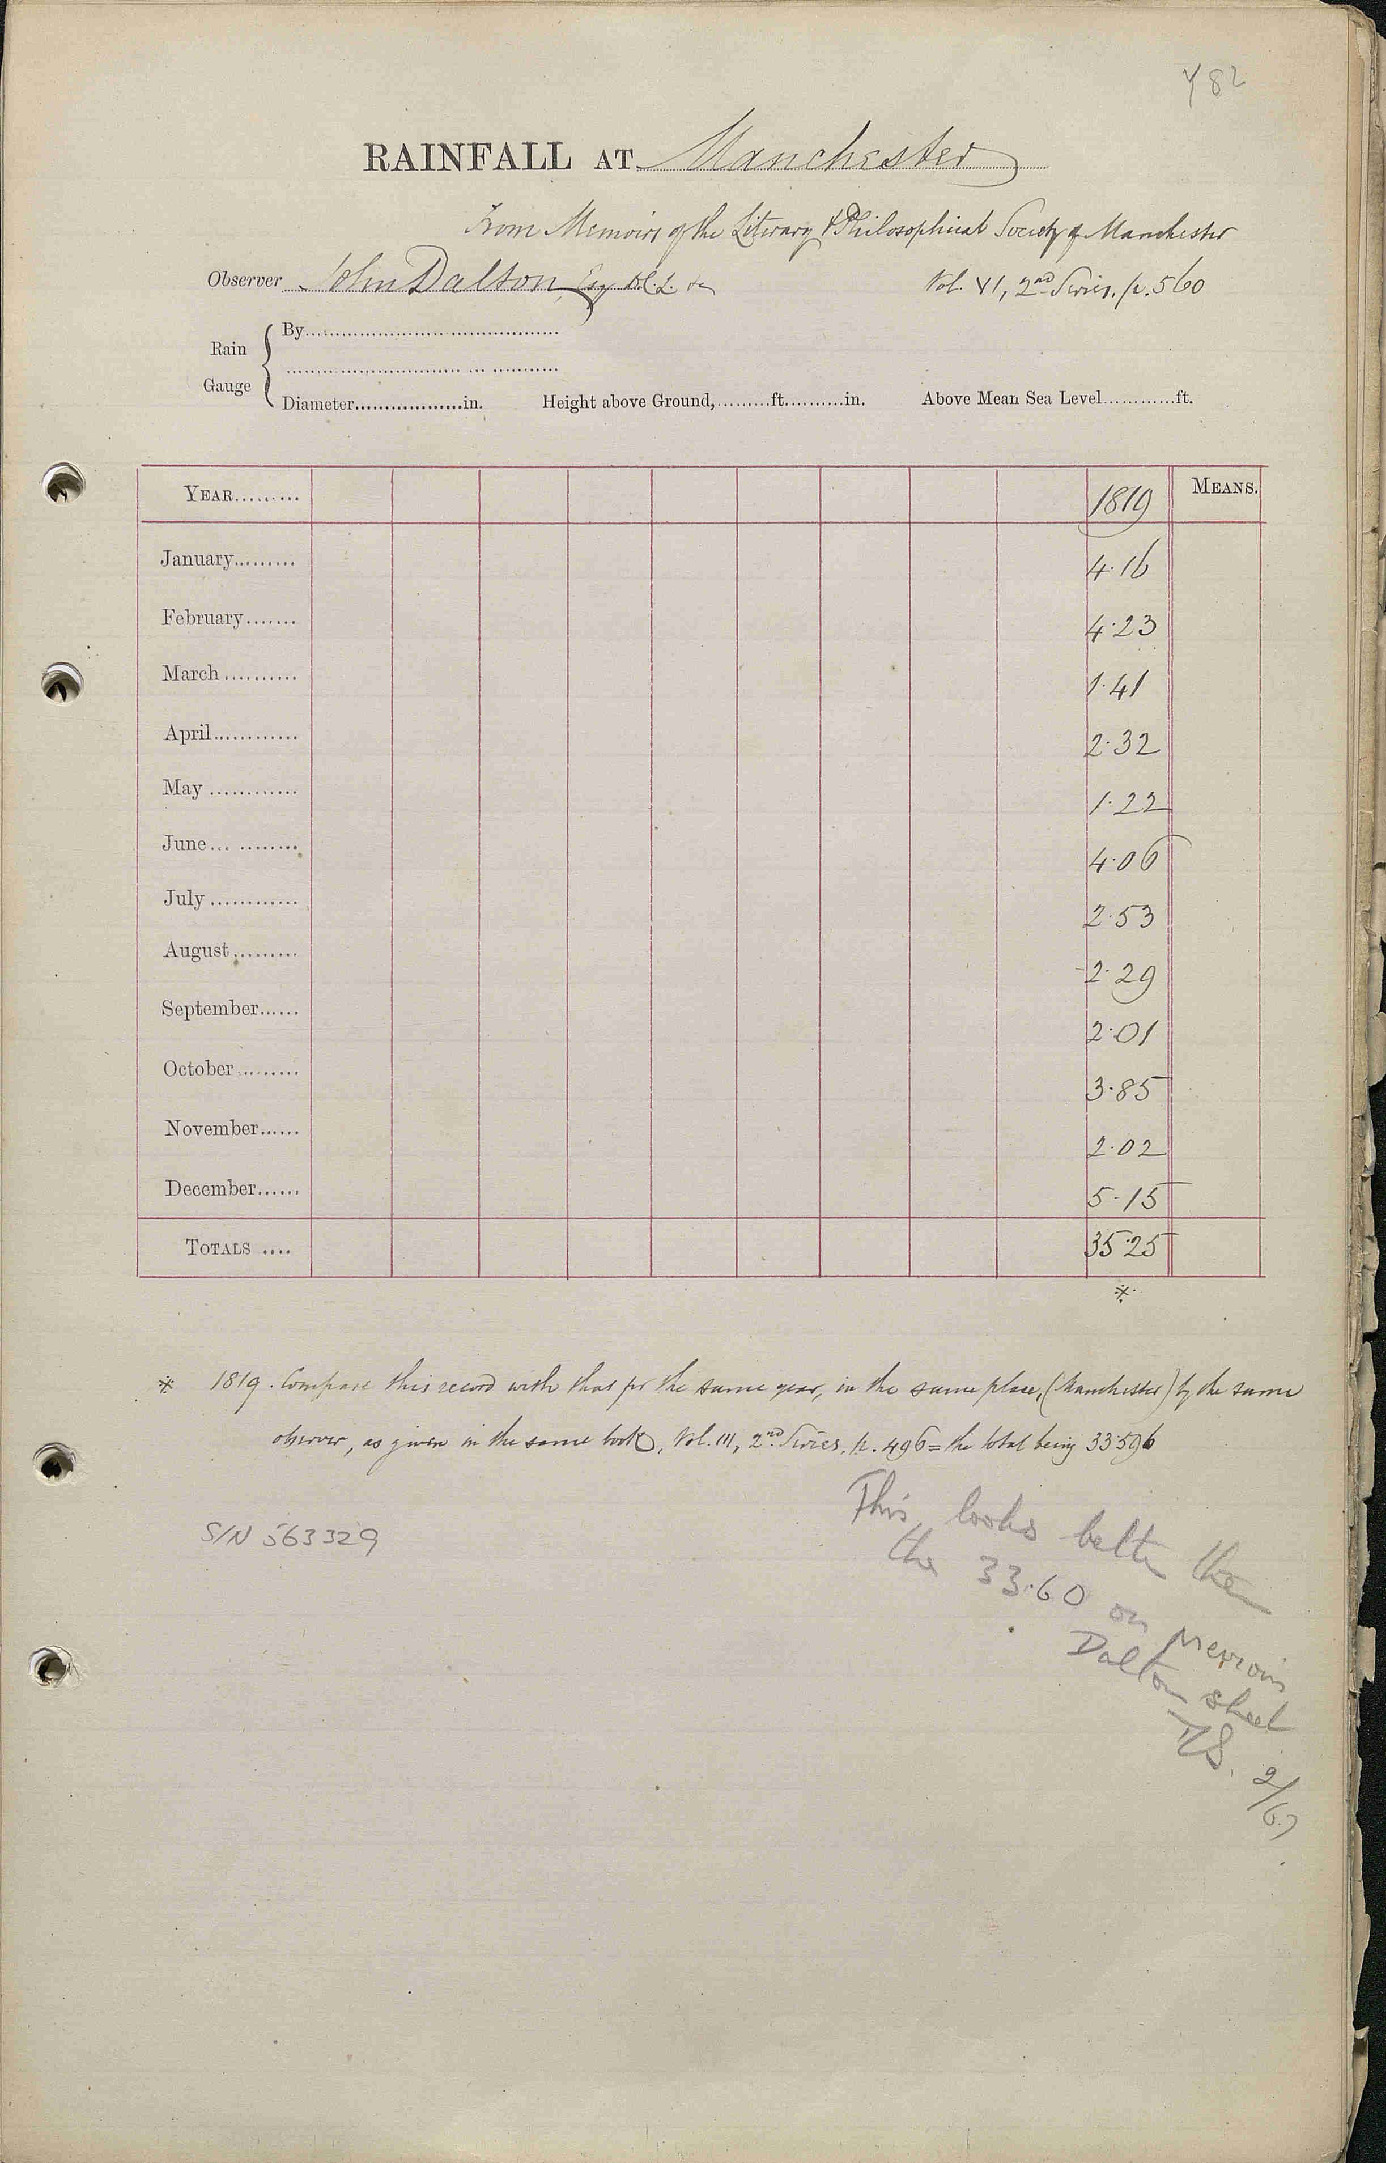 Y82
RAINFALL AT Manchester
From Memoirs of the Literary & Philosophical Society of Manchester
Observer John Dalton, Esq D.C.L. &c
Vol. VI, 2nd Series. p. 560
Rain Gauge
By
Diameter in. Height above Ground, ft. in. Above Mean Sea Level ft.
YEAR 1819 MEANS.
January 4.16
February 4.23
March 1.41
April 2.32
May 1.22
June 4.06
July 2.53
August 2.29
September 2.01
October 3.85
November 2.02
December 5.15
TOTALS 35.25
*
* 1819. Compare this record with that for the same year, in the same place, (Manchester) by the same
observer, as given in the same book, Vol. III, 2nd Series. p. 496 = the total being 33.596
S/N 563329
This looks better than
the 33.60 on
Dalton sheet
2/67